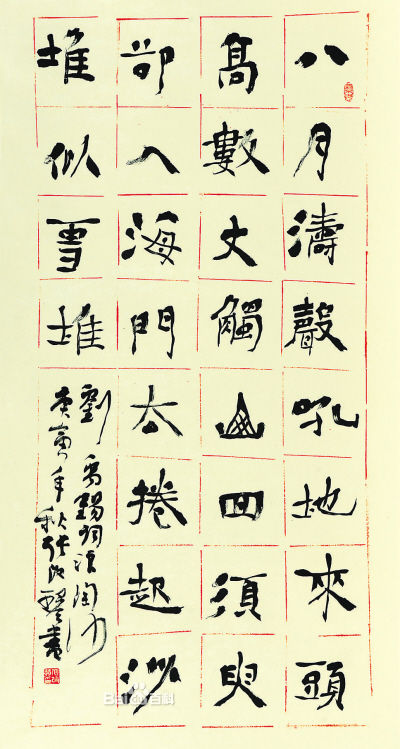 八月濤聲吼地來頭
髙數丈觸山回須臾
卻入海門去捲起沙
堆似雪堆
劉禹錫詞浪淘沙
庚寅年秋張改琴書
Baidu百科